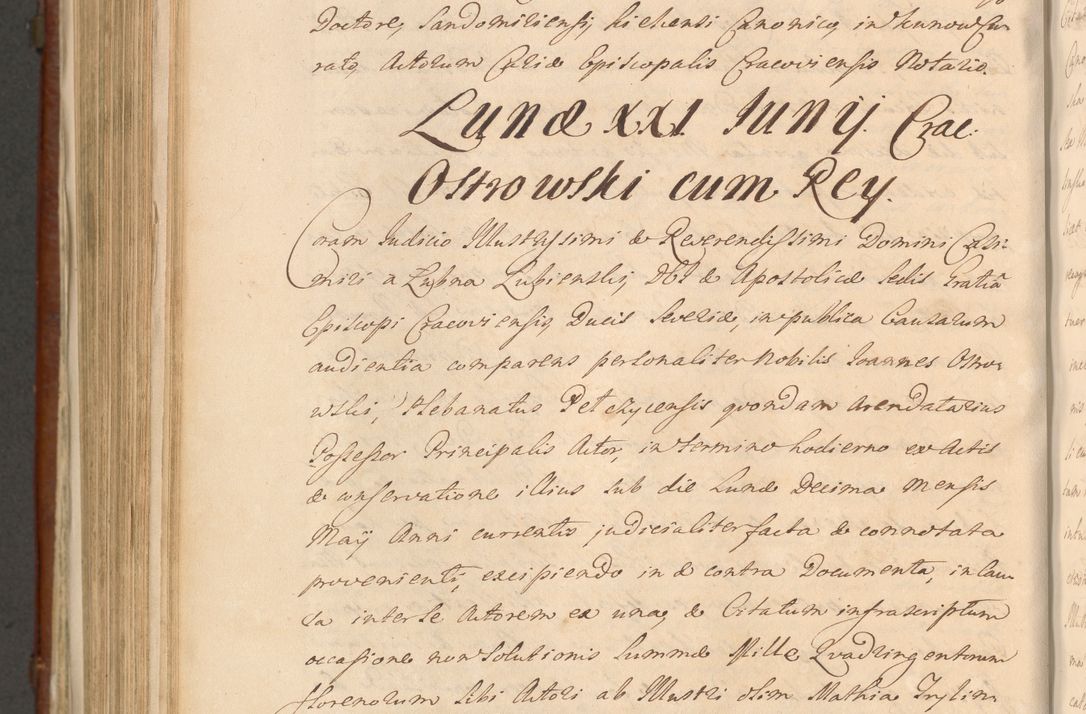 Doctore, Sandomiriensi, Kielcensi Canonico, in Kunow Cu-
rato, Actorum Curiæ Episcopalis Cracoviensis Notario.
Lunæ XXI Junij. Crac:
Ostrowski cum Rey.
Coram Judicio Illustrissimi & Reverendissimi Domini Casi-
miri a Łubna Łubienski, Dei & Apostolicæ Sedis Gratiã
Episcopi Cracoviensis, Ducis Severiæ, in publica Causarum
audientia comparens personaliter Nobilis Joannes Ostro-
wski, Plebanatus Petrycensis quondam Arendatarius
Possessor Principalis Actor, in termino hodierno ex Actis
& conservatione illius sub die Lunæ Decima Mensis
Maij Anni currentis judicialiter facta & connotata
provenienti, excipiendo in & contra Documenta, in Cau-
sa inter se Actorem ex una, & Citatum infrascriptum
occasione non Solutionis Summæ Mille Quadringentorum
florenorum sibi Actori ab Illustri olim Mathia Trylin-